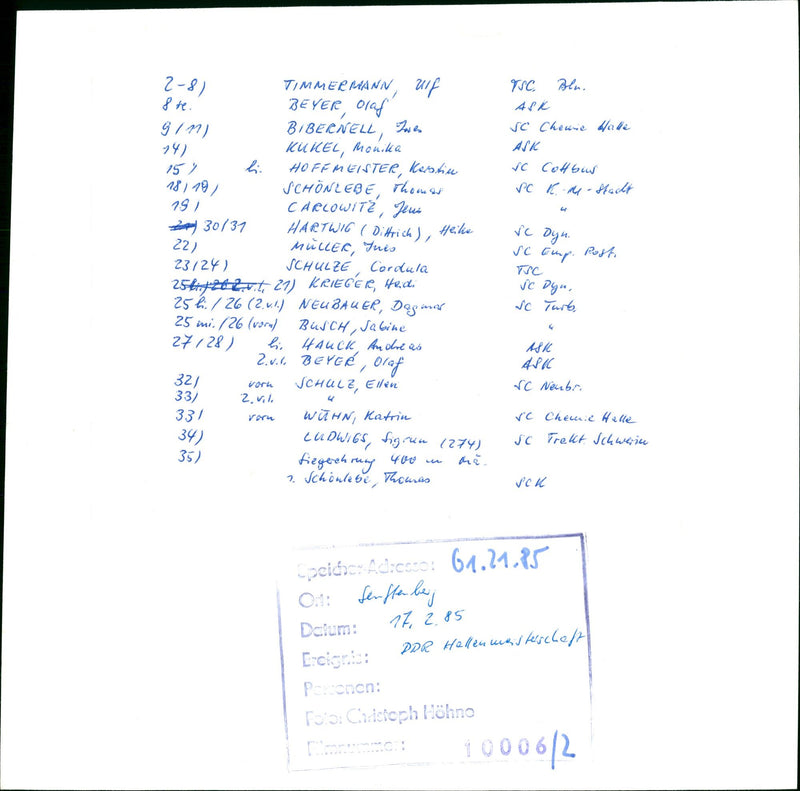 2-8) TIMMERMANN, Ulf TSC. Bln.
8 re. BEYER, Olaf ASK
9/11) BIBERNELL, Ines SC Chemie Halle
14) KUKEL, Monika ASK
15) li. HOFFMEISTER, Kerstin SC Cottbus
18/19) SCHÖNLEBE, Thomas SC K.-M.-Stadt
19) CARLOWITZ, Jens "
30/31 HARTWIG (Dittrich), Heike SC Dyn.
22) MÜLLER, Ines SC Emp. Rost.
23/24) SCHULZE, Cordula TSC
21) KRIEGER, Heidi SC Dyn.
25 li. / 26 (2.v.l.) NEUBAUER, Dagmar SC Turb.
25 mi. /26 (vorn) BUSCH, Sabine "
27/28) li. HAUCK, Andreas ASK
2.v.l. BEYER, Olaf ASK
32) vorn SCHULZ, Ellen SC Neubr.
33) 2.v.l. "
33) vorn WÜHN, Katrin SC Chemie Halle
34) LUDWIGS, Sigrun (274) SC Trakt Schwerin
35) Siegerehrung 400 m Mä.
Schönlebe, Thomas SCK
Speicher-Adresse: 61.21.85
Ort: Senftenberg
Datum: 17. 2. 85
Ereignis: DDR Hallenmeisterschaft
Personen:
Foto: Christoph Höhne
Filmnummer: 10006/2